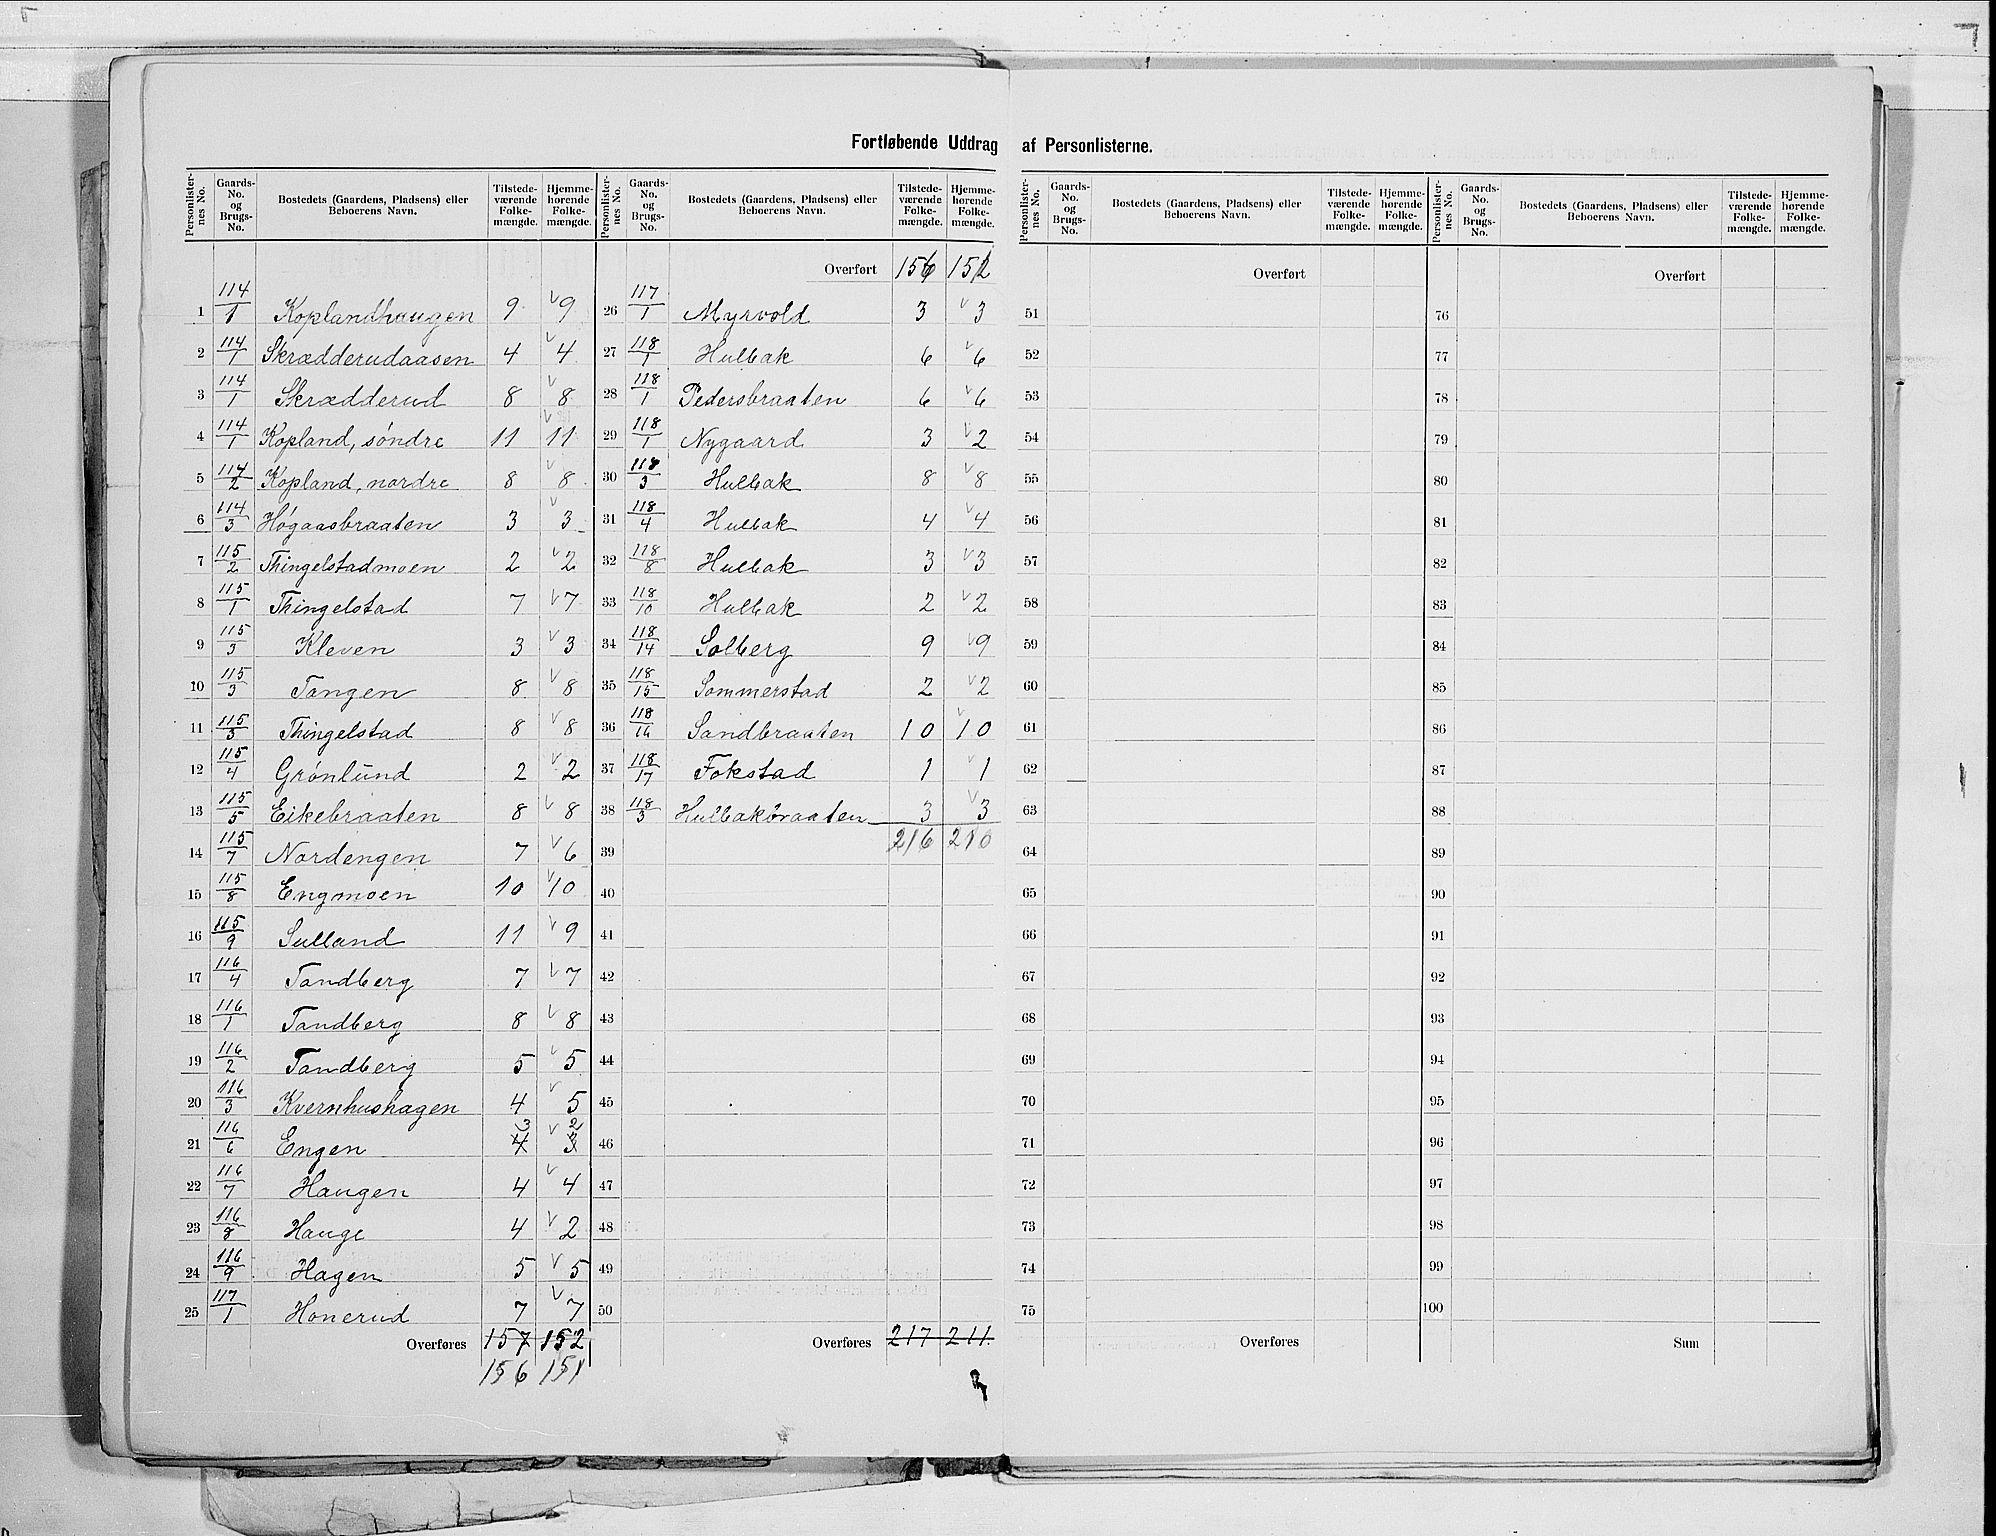 Fortløbende Uddrag af Personlisterne.
Personlister-nes No. | Gaards-No. og Brugs-No. | Bostedets (Gaardens, Pladsens) eller Beboerens Navn. | Tilstede-værende Folke-mængde. | Hjemme-hørende Folke-mængde.
1 114/1 Koplandhaugen 9 v 9
2 114/1 Skrædderudaasen 4 v 4
3 114/1 Skrædderud 8 v 8
4 114/1 Kopland, söndre 11 v 11
5 114/2 Kopland, nordre 8 v 8
6 114/3 Högaasbraaten 3 v 3
7 115/2 Thingelstadmoen 2 v 2
8 115/1 Thingelstad 7 v 7
9 115/3 Kleven 3 v 3
10 115/3 Tangen 8 v 8
11 115/3 Thingelstad 8 v 8
12 115/4 Grönlund 2 v 2
13 115/5 Eikebraaten 8 v 8
14 115/7 Nordengen 7 v 6
15 115/8 Engmoen 10 v 10
16 115/9 Sulland 11 v 9
17 116/4 Tandberg 7 v 7
18 116/1 Tandberg 8 v 8
19 116/2 Tandberg 5 v 5
20 116/3 Kvernhushagen 4 v 5
21 116/6 Engen 4 3 v 3 2
22 116/7 Haugen 4 v 4
23 116/8 Hauge 4 v 2
24 116/9 Hagen 5 v 5
25 117/1 Honerud 7 v 7
Overføres 157 152
156 151
Personlister-nes No. | Gaards-No. og Brugs-No. | Bostedets (Gaardens, Pladsens) eller Beboerens Navn. | Tilstede-værende Folke-mængde. | Hjemme-hørende Folke-mængde.
Overført 156 151
26 117/1 Myrvold 3 v 3
27 118/1 Hulbak 6 v 6
28 118/1 Pedersbraaten 6 v 6
29 118/1 Nygaard 3 v 2
30 118/3 Hulbak 8 v 8
31 118/4 Hulbak 4 v 4
32 118/8 Hulbak 3 v 3
33 118/10 Hulbak 2 v 2
34 118/14 Solberg 9 v 9
35 118/15 Sommerstad 2 v 2
36 118/16 Sandbraaten 10 v 10
37 118/17 Fokstad 1 v 1
38 118/3 Hulbakbraaten 3 v 3
39 216 210
40
41
42
43
44
45
46
47
48
49
50
Overføres 217 211.
Personlister-nes No. | Gaards-No. og Brugs-No. | Bostedets (Gaardens, Pladsens) eller Beboerens Navn. | Tilstede-værende Folke-mængde. | Hjemme-hørende Folke-mængde.
Overført
51
52
53
54
55
56
57
58
59
60
61
62
63
64
65
66
67
68
69
70
71
72
73
74
75
Overføres
Personlister-nes No. | Gaards-No. og Brugs-No. | Bostedets (Gaardens, Pladsens) eller Beboerens Navn. | Tilstede-værende Folke-mængde. | Hjemme-hørende Folke-mængde.
Overført
76
77
78
79
80
81
82
83
84
85
86
87
88
89
90
91
92
93
94
95
96
97
98
99
100
Sum